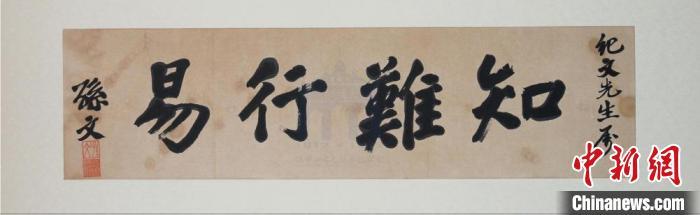 紀文先生屬
知難行易
孫文
中新網
Chinanews.com